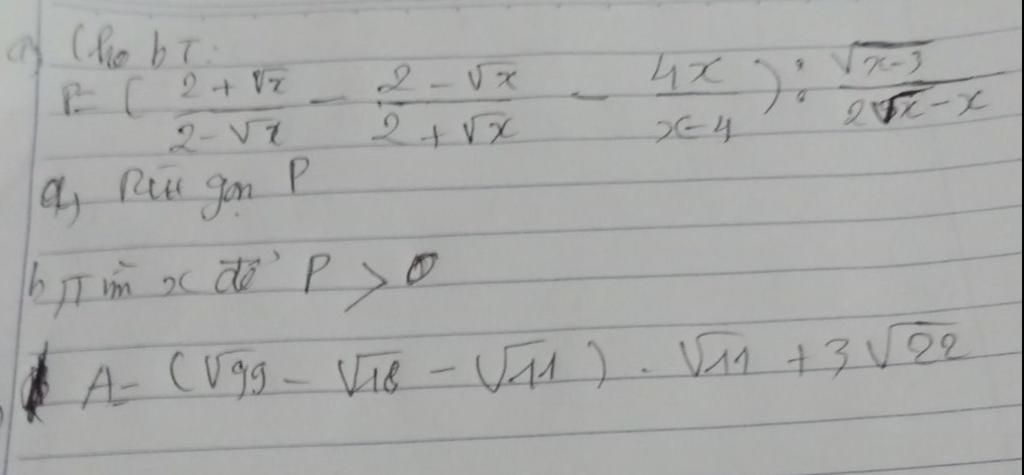 a) Cho bT:
P = ( \frac{2 + \sqrt{x}}{2 - \sqrt{x}} - \frac{2 - \sqrt{x}}{2 + \sqrt{x}} - \frac{4x}{x - 4} ) : \frac{\sqrt{x - 3}}{2\sqrt{x} - x}
a, Rút gọn P
b, Tìm x để P > 0
A = (\sqrt{99} - \sqrt{18} - \sqrt{11}) . \sqrt{11} + 3\sqrt{22}